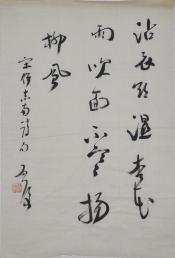 沾衣欲湿杏花
雨吹面不寒杨
柳风
宋僧志南诗句